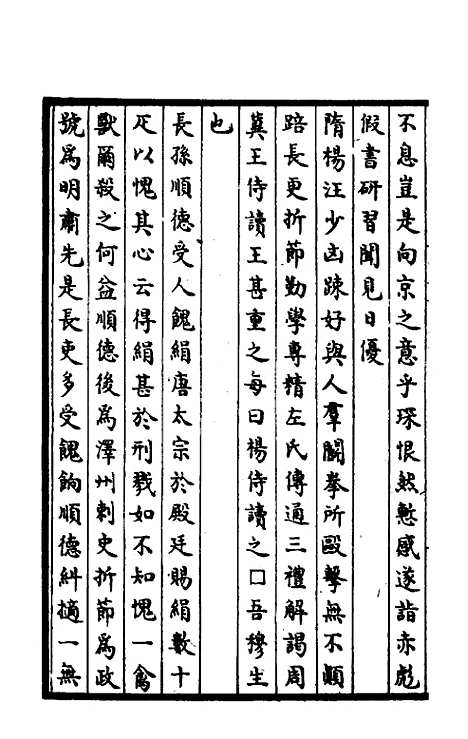 不息豈是向京之意乎琛恨然慙感遂詣赤彪
假書研習聞見日優
隋楊汪少凶踈好與人羣鬭拳所毆擊無不顛
踣長更折節勤學専精左氏傳通三禮解謁周
兾王侍讀王甚重之每曰楊侍讀之口吾穆生
也
長孫順德受人餽絹唐太宗於殿廷賜絹數十
疋以愧其心云得絹甚於刑戮如不知愧一禽
獸爾殺之何益順德後爲澤州刺史折節爲政
號爲明肅先是長吏多受餽餉順德糾擿一無